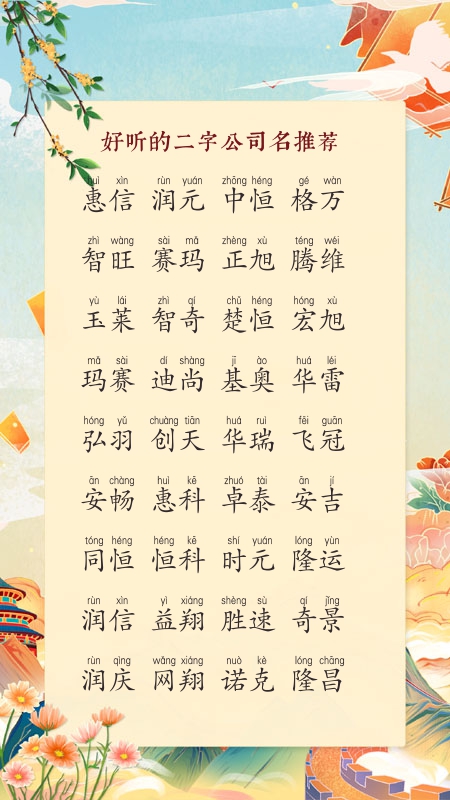 好听的二字公司名推荐
huì xìn rùn yuán zhōng héng gé wàn
惠信 润元 中恒 格万
zhì wàng sài mǎ zhèng xù téng wéi
智旺 赛玛 正旭 腾维
yù lái zhì qí chǔ héng hóng xù
玉莱 智奇 楚恒 宏旭
mǎ sài dí shàng jī ào huá léi
玛赛 迪尚 基奥 华雷
hóng yǔ chuàng tiān huá ruì fēi guān
弘羽 创天 华瑞 飞冠
ān chàng huì kē zhuó tài ān jí
安畅 惠科 卓泰 安吉
tóng héng héng kē shí yuán lóng yùn
同恒 恒科 时元 隆运
rùn xìn yì xiáng shèng sù qí jǐng
润信 益翔 胜速 奇景
rùn qìng wǎng xiáng nuò kè lóng chāng
润庆 网翔 诺克 隆昌